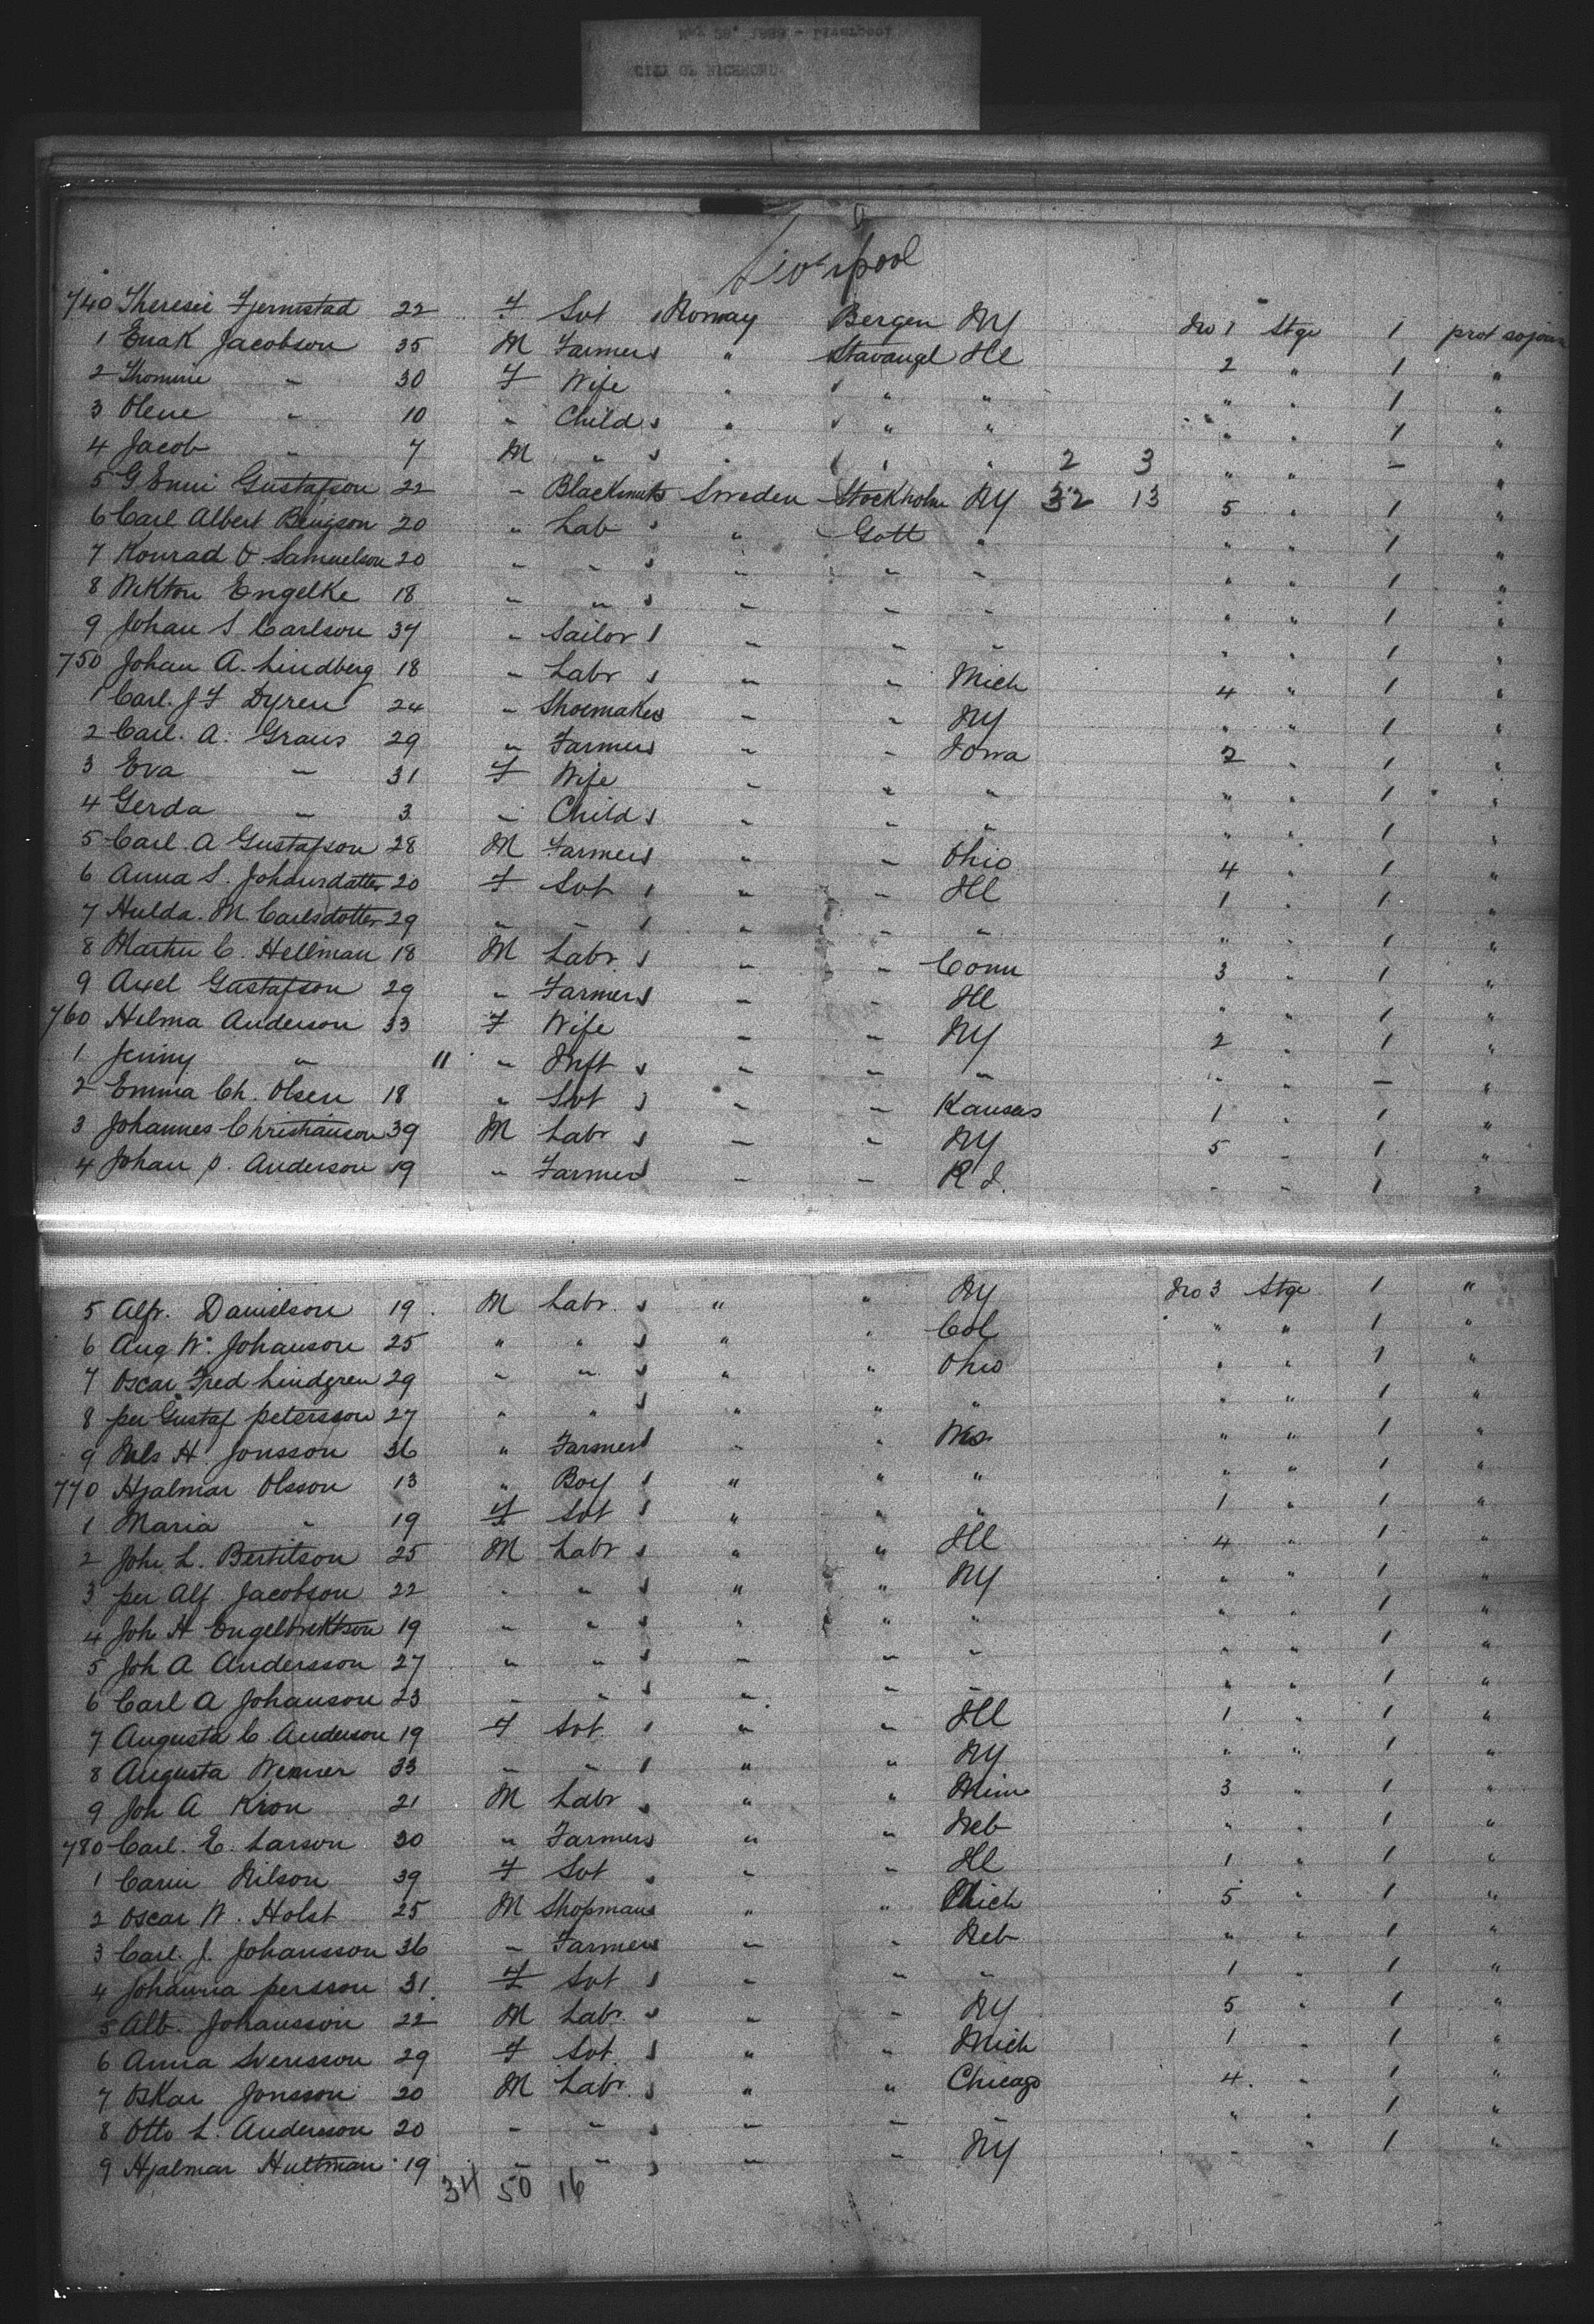 CITY OF RICHMOND
Liverpool
740 Theresie Fjermstad 22 F Svt s Norway Bergen NY No 1 Stge 1 prot sojour
1 Enak Jacobson 35 M Farmers " Stavangd Ill 2 " 1 "
2 Thomine " 30 F Wife " " " " " 1 "
3 Olene " 10 " Child s " " " " " 1 "
4 Jacob " 7 M " s " " " 2 3 " " - "
5 G Emu Gustafson 22 " Blacksmith Sweden Stockholm NY 32 13 5 " 1 "
6 Carl Albert Bengson 20 " Lab s " Gott " " " 1 "
7 Konrad O. Samuelson 20 " " s " " " " " 1 "
8 Wiktor Engelke 18 " " s " " " " " 1 "
9 Johan S Carlson 37 " Sailor s " " " " " 1 "
750 Johan A. Lindberg 18 " Labr s " " Mich 4 " 1 "
1 Carl. J F Dyren 24 " Shoemakers " " NY " " 1 "
2 Carl. A. Graus 29 " Farmers " " Iowa 2 " 1 "
3 Eva " 31 F Wife " " " " " 1 "
4 Gerda " 3 " Child s " " " " " 1 "
5 Carl. A Gustafson 28 M Farmers " " Ohio 4 " 1 "
6 Anna S. Johansdatter 20 F Svt s " " Ill 1 " 1 "
7 Hulda. M. Carlsdotter 29 " " s " " " " " 1 "
8 Martin C. Hellman 18 M Labr s " " Conn 3 " 1 "
9 Axel Gustafson 29 " Farmers " " Ill " " 1 "
760 Hilma Anderson 33 F Wife " " NY 2 " 1 "
1 Jenny " 11 " Inft s " " " " " - "
2 Emma Ch. Olsen 18 " Svt s " " Kansas 1 " 1 "
3 Johannes Christianson 39 M Labr s " " NY 5 " 1 "
4 Johan P. Anderson 19 " Farmers " " R I. " " 1 "
5 Alfr. Danielson 19 M Labr. s " " NY No 3 Stge 1 "
6 Aug W. Johanson 25 " " s " " Col " " 1 "
7 Oscar Fred Lindgren 29 " " s " " Ohio " " 1 "
8 per Gustaf petersson 27 " " s " " " " " 1 "
9 Nels H. Jonsson 36 " Farmers " " Wis " " 1 "
770 Hjalmar Olsson 13 " Boy s " " " " " 1 "
1 Maria " 19 F Svt s " " " 1 " 1 "
2 Joh. L. Bertilson 25 M Labr s " " Ill 4 " 1 "
3 per Alf Jacobson 22 " " s " " NY " " 1 "
4 Joh H Engelbrektson 19 " " s " " " " " 1 "
5 Joh A Andersson 27 " " s " " " " " 1 "
6 Carl A Johanson 23 " " s " " " " " 1 "
7 Augusta C. Anderson 19 F Svt s " " Ill 1 " 1 "
8 Augusta Wenner 33 " " s " " NY " " 1 "
9 Joh A Kron 21 M Labr s " " Minn 3 " 1 "
780 Carl. E. Larson 30 " Farmers " " Neb " " 1 "
1 Carin Nilson 39 F Svt s " " Ill 1 " 1 "
2 Oscar W. Holst 25 M Shopmans " " Mich 5 " 1 "
3 Carl. J. Johansson 36 " Farmers " " Neb " " 1 "
4 Johanna persson 31. F Svt s " " " 1 " 1 "
5 Alb. Johansson 22 M Labr. s " " NY 5 " 1 "
6 Anna Svensson 29 F Svt. s " " Mich 1 " 1 "
7 Oskar Jonsson 20 M Labr. s " " Chicago 4. " 1 "
8 Otto L. Anderson 20 " " s " " " " " 1 "
9 Hjalmar Hultman 19 " " s " " NY " " 1 "
34 50 16